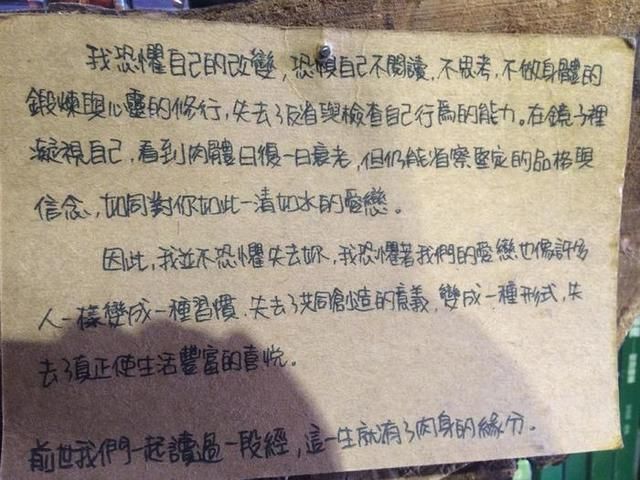 我恐懼自己的改變，恐懼自己不閱讀，不思考，不做身體的
鍛煉與心靈的修行，失去了反省與檢查自己行為的能力。在鏡子裡
凝視自己，看到肉體日復一日衰老，但仍能省察堅定的品格與
信念，如同對你如此一清如水的愛戀。
因此，我並不恐懼失去妳，我恐懼著我們的愛戀也像許多
人一樣變成一種習慣，失去了共同創造的意義，變成一種形式，失
去了真正使生活豐富的喜悅。
前世我們一起讀過一段經，這一生就有了肉身的緣分。